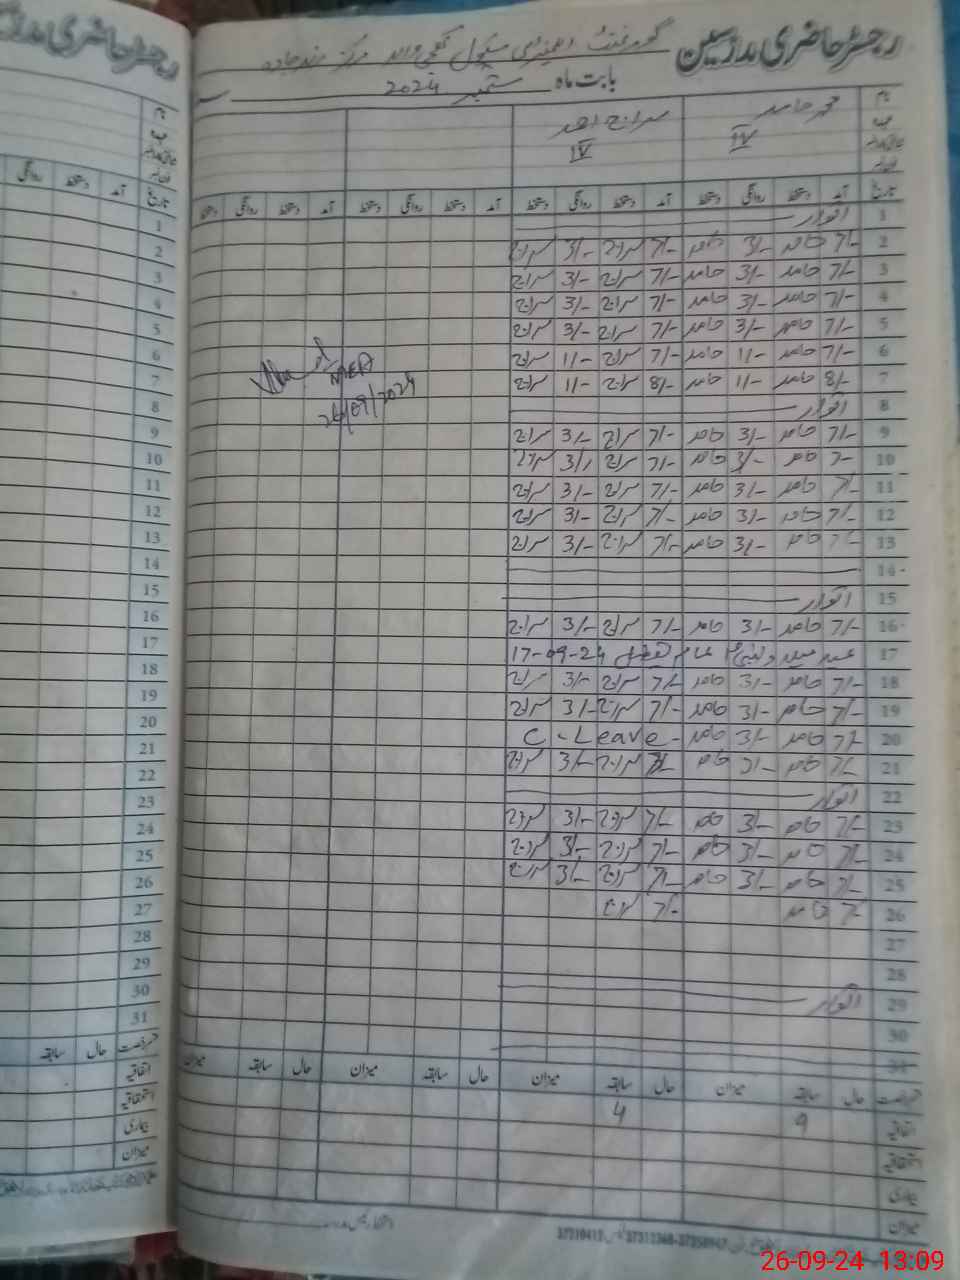 رجسٹر حاضری مدرسین
گورنمنٹ سکول مرکز
بابت ماہ ستمبر 2024
نام محمد حامد سراج احمد
عہدہ IV IV
تاریخ آمد دستخط روانگی دستخط آمد دستخط روانگی دستخط آمد دستخط روانگی دستخط آمد دستخط روانگی دستخط
1 اتوار
2 7/- حامد 3/- حامد 7/- سراج 3/- سراج
3 7/- حامد 3/- حامد 7/- سراج 3/- سراج
4 7/- حامد 3/- حامد 7/- سراج 3/- سراج
5 7/- حامد 3/- حامد 7/- سراج 3/- سراج
6 7/- حامد 11/- حامد 7/- سراج 11/- سراج
7 8/- حامد 11/- حامد 8/- سراج 11/- سراج
MEA
26/09/2024
8 اتوار
9 7/- حامد 3/- حامد 7/- سراج 3/- سراج
10 7/- حامد 3/- حامد 7/- سراج 3/- سراج
11 7/- حامد 3/- حامد 7/- سراج 3/- سراج
12 7/- حامد 3/- حامد 7/- سراج 3/- سراج
13 7/- حامد 3/- حامد 7/- سراج 3/- سراج
14
15 اتوار
16 7/- حامد 3/- حامد 7/- سراج 3/- سراج
17 عید میلاد النبی عام تعطیل 17-09-24
18 7/- حامد 3/- حامد 7/- سراج 3/- سراج
19 7/- حامد 3/- حامد 7/- سراج 3/- سراج
20 7/- حامد 3/- حامد C-Leave
21 7/- حامد 3/- حامد 7/- سراج 3/- سراج
22 اتوار
23 7/- حامد 3/- حامد 7/- سراج 3/- سراج
24 7/- حامد 3/- حامد 7/- سراج 3/- سراج
25 7/- حامد 3/- حامد 7/- سراج 3/- سراج
26 7/- حامد 7/- سراج
27
28
29 اتوار
30
31
رخصت حال سابقہ میزان حال سابقہ میزان حال سابقہ میزان حال سابقہ میزان
اتفاقیہ 9 4
استحقاقیہ
بیماری
میزان
37310413 37313368-37350947
رجسٹر حاضری مدرسین
نام
عہدہ
تاریخ آمد دستخط روانگی
1
2
3
4
5
6
7
8
9
10
11
12
13
14
15
16
17
18
19
20
21
22
23
24
25
26
27
28
29
30
31
رخصت حال سابقہ
اتفاقیہ
استحقاقیہ
بیماری
میزان
26-09-24 13:09